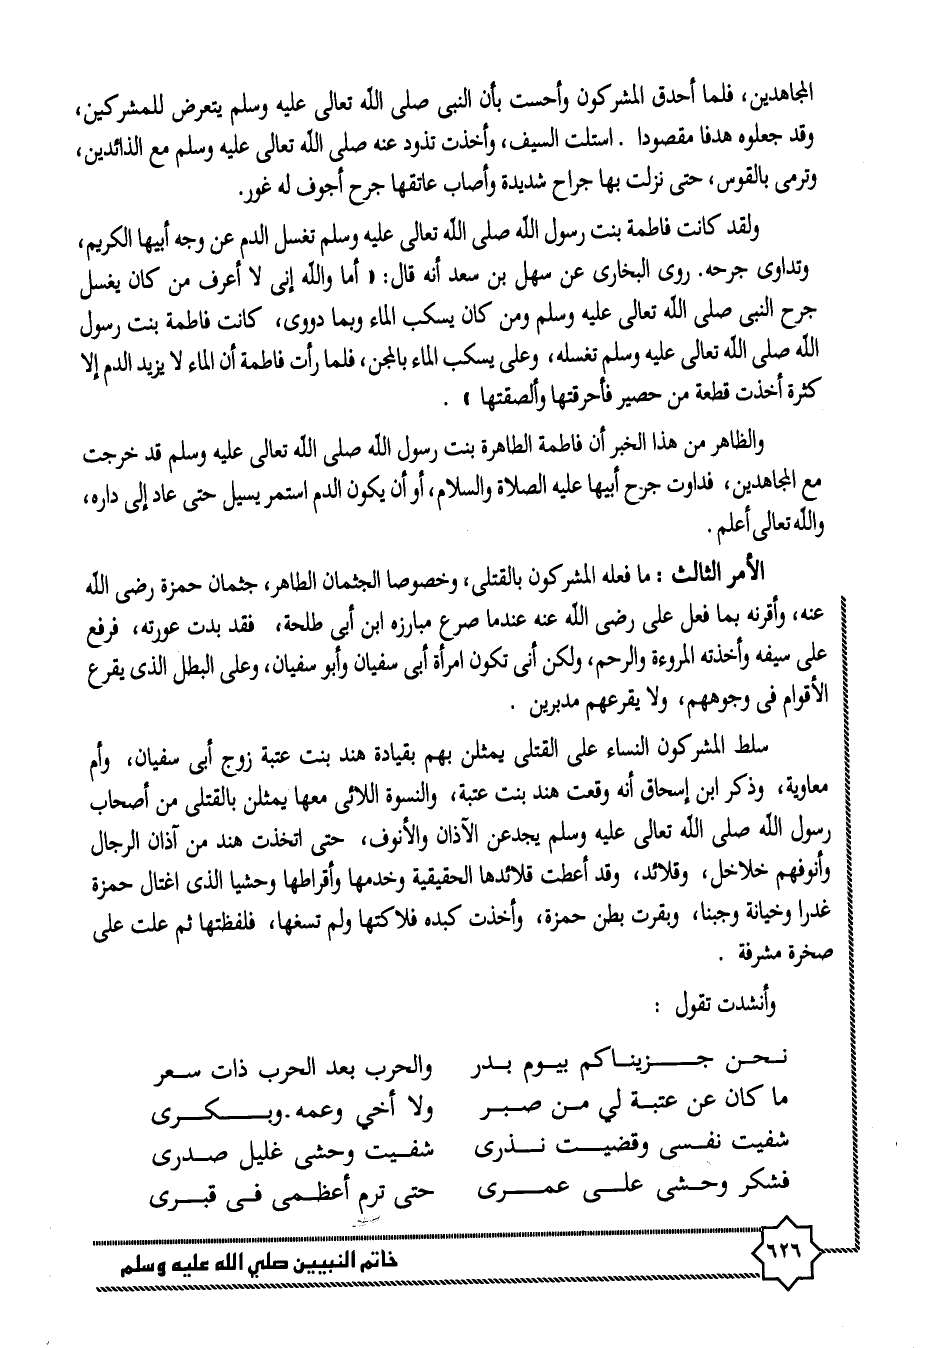 المجاهدين، فلما أحدق المشركون وأحست بأن النبى صلى الله تعالى عليه وسلم يتعرض للمشركين،
وقد جعلوه هدفا مقصودا . استلت السيف، وأخذت تذود عنه صلى الله تعالى عليه وسلم مع الذائدين،
وترمى بالقوس، حتى نزلت بها جراح شديدة وأصاب عاتقها جرح أجوف له غور.
ولقد كانت فاطمة بنت رسول الله صلى الله تعالى عليه وسلم تغسل الدم عن وجه أبيها الكريم،
وتداوى جرحه. روى البخارى عن سهل بن سعد أنه قال: « أما والله إنى لا أعرف من كان يغسل
جرح النبى صلى الله تعالى عليه وسلم ومن كان يسكب الماء وبما دووى، كانت فاطمة بنت رسول
الله صلى الله تعالى عليه وسلم تغسله، وعلى يسكب الماء بالمجن، فلما رأت فاطمة أن الماء لا يزيد الدم إلا
كثرة أخذت قطعة من حصير فأحرقتها وألصقتها » .
والظاهر من هذا الخبر أن فاطمة الطاهرة بنت رسول الله صلى الله تعالى عليه وسلم قد خرجت
مع المجاهدين، فداوت جرح أبيها عليه الصلاة والسلام، أو أن يكون الدم استمر يسيل حتى عاد إلى داره،
والله تعالى أعلم .
الأمر الثالث : ما فعله المشركون بالقتلى، وخصوصا الجثمان الطاهر، جثمان حمزة رضى الله
عنه، وأقرنه بما فعل على رضى الله عنه عندما صرع مبارزه ابن أبى طلحة، فقد بدت عورته، فرفع
على سيفه وأخذته المروءة والرحم، ولكن أنى تكون امرأة أبى سفيان وأبو سفيان، وعلى البطل الذى يقرع
الأقوام فى وجوههم، ولا يقرعهم مدبرين .
سلط المشركون النساء على القتلى يمثلن بهم بقيادة هند بنت عتبة زوج أبى سفيان، وأم
معاوية، وذكر ابن إسحاق أنه وقعت هند بنت عتبة، والنسوة اللائى معها يمثلن بالقتلى من أصحاب
رسول الله صلى الله تعالى عليه وسلم يجدعن الآذان والأنوف، حتى اتخذت هند من آذان الرجال
وأنوفهم خلاخل، وقلائد، وقد أعطت قلائدها الحقيقية وخدمها وأقراطها وحشيا الذى اغتال حمزة
غدرا وخيانة وجبنا، وبقرت بطن حمزة، وأخذت كبده فلاكتها ولم تسغها، فلفظتها ثم علت على
صخرة مشرفة .
وأنشدت تقول :
نحن جزيناكم بيوم بدر والحرب بعد الحرب ذات سعر
ما كان عن عتبة لي من صبر ولا أخي وعمه.وبكرى
شفيت نفسى وقضيت نذرى شفيت وحشى غليل صدرى
فشكر وحشى على عمرى حتى ترم أعظمى فى قبرى
٦٢٦
خاتم النبيين صلي الله عليه وسلم